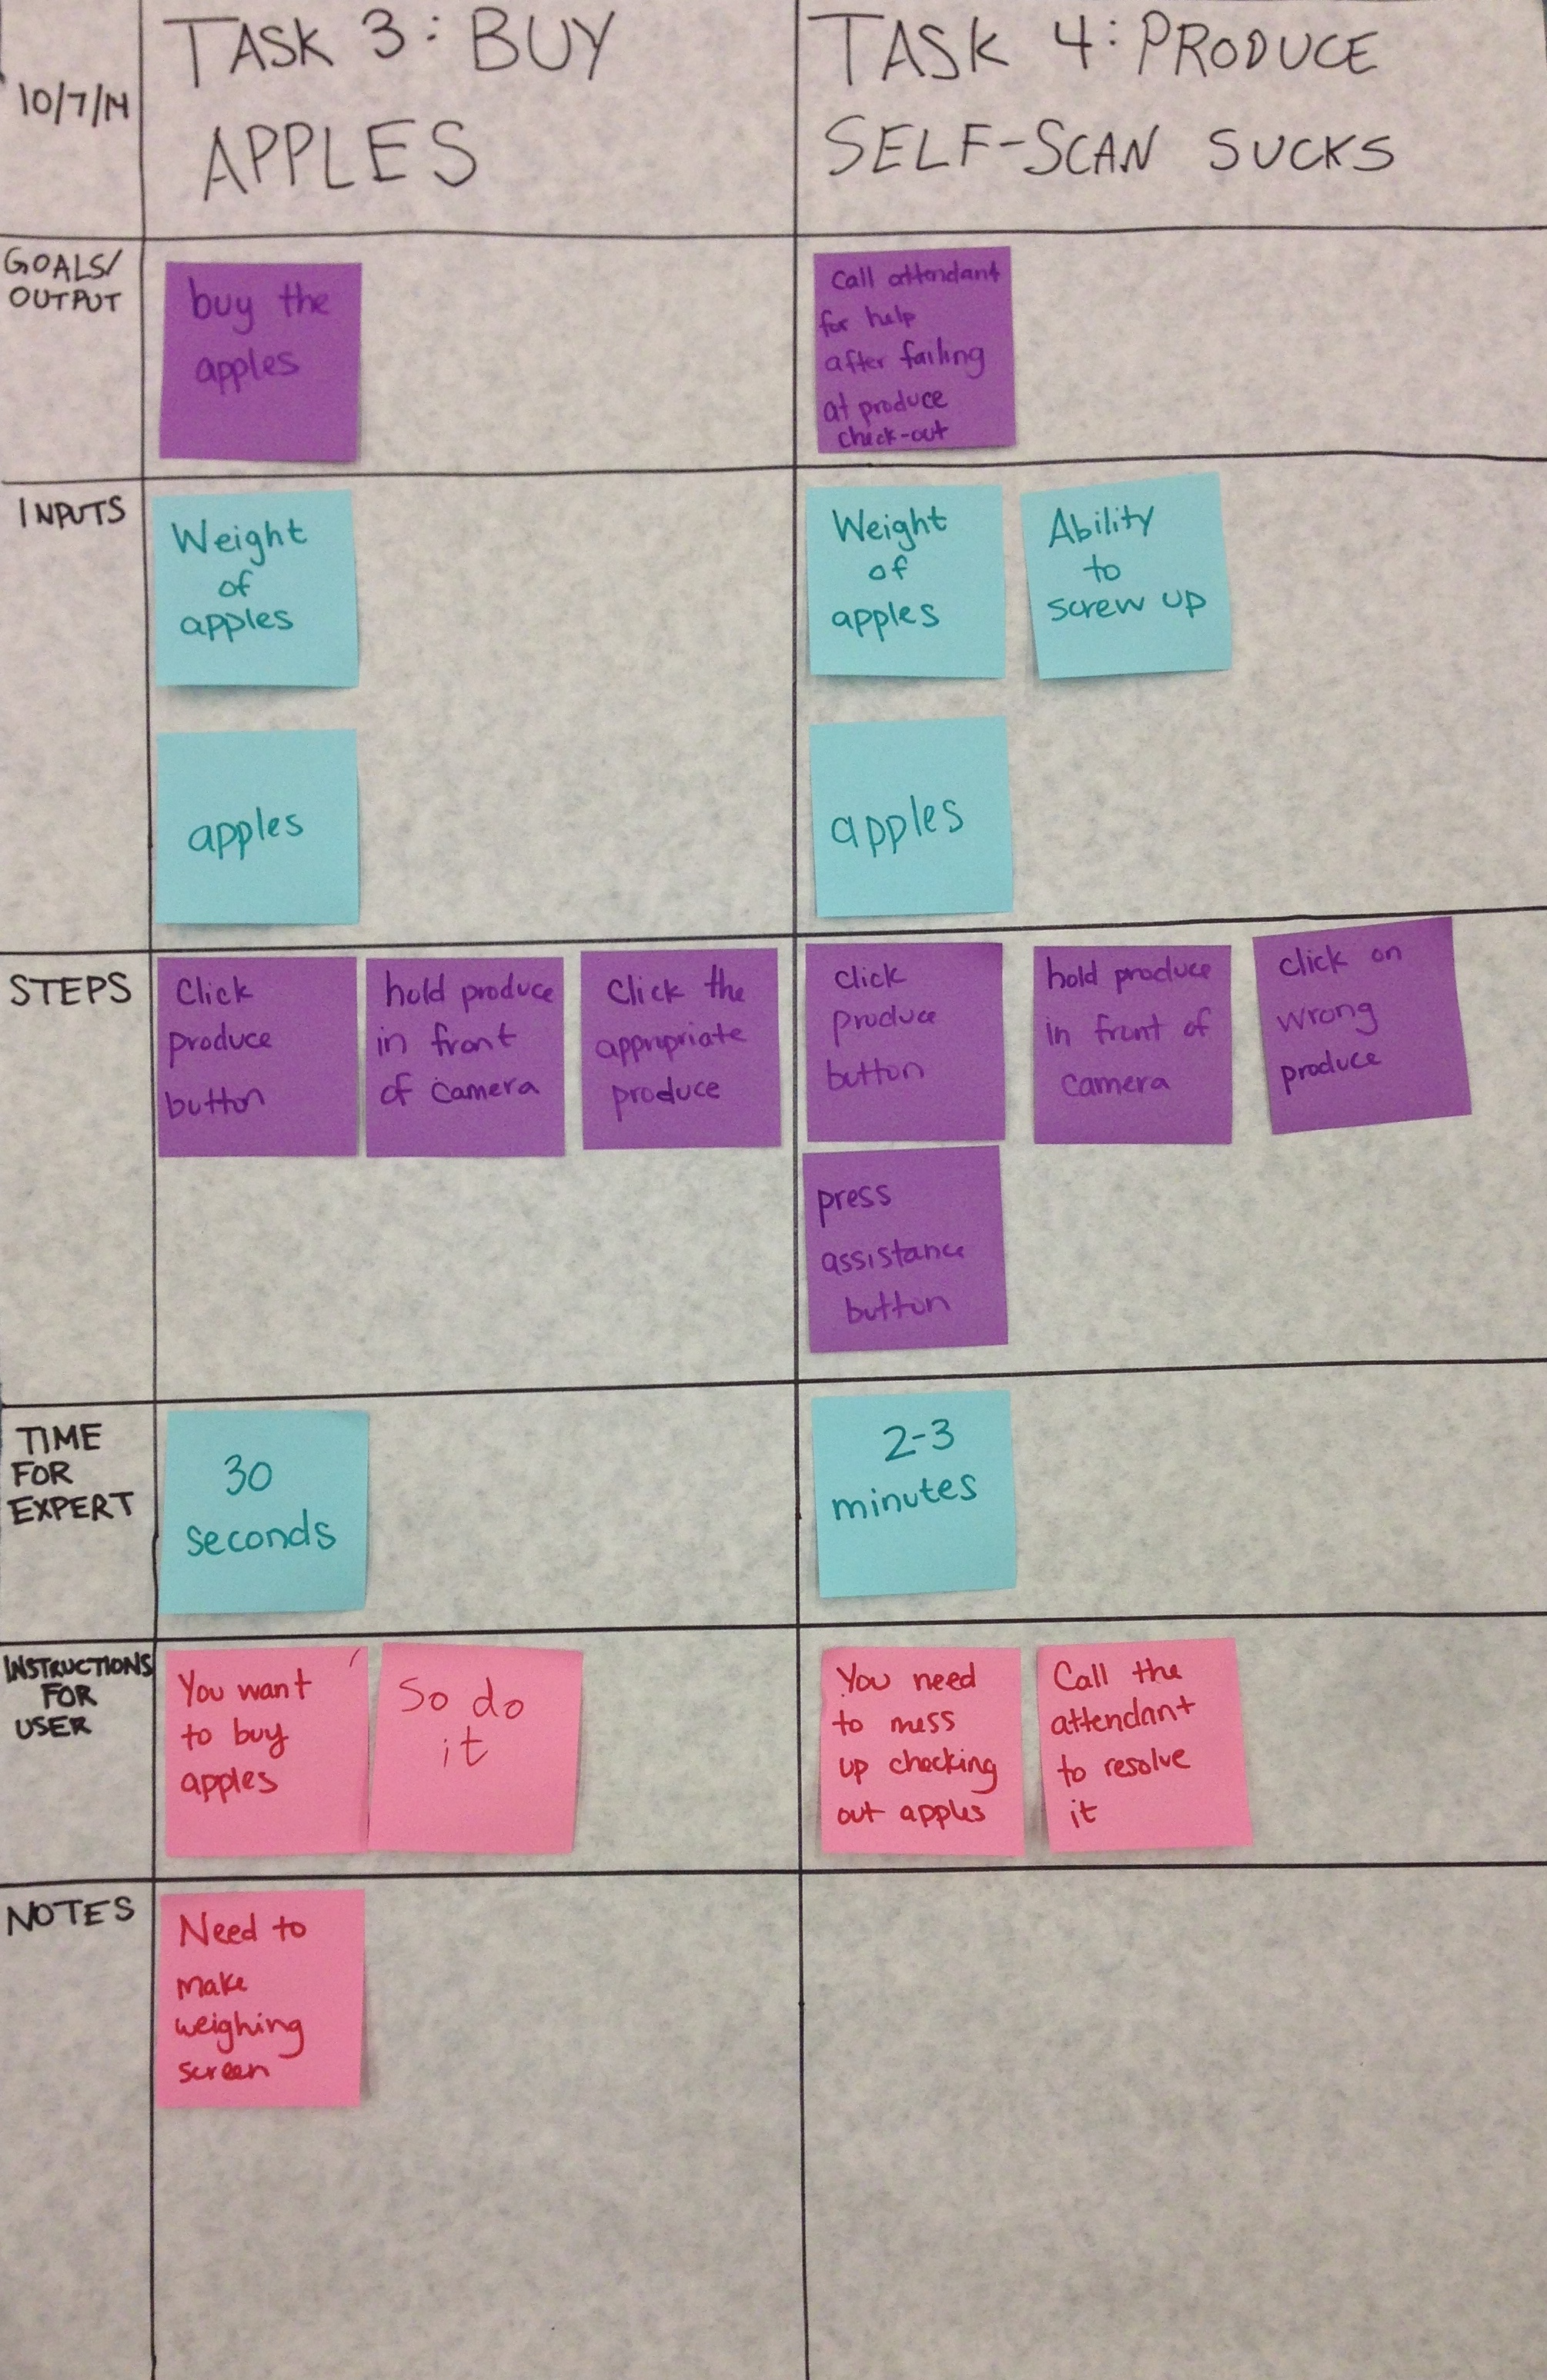 10/7/14
TASK 3: BUY
APPLES
TASK 4: PRODUCE
SELF-SCAN SUCKS
GOALS/
OUTPUT
buy the
apples
Call attendant
for help
after failing
at produce
check-out
INPUTS
Weight
of
apples
apples
Weight
of
apples
Ability
to
screw up
apples
STEPS
Click
produce
button
hold produce
in front
of camera
Click the
appropriate
produce
click
produce
button
hold produce
in front of
camera
click on
wrong
produce
press
assistance
button
TIME
FOR
EXPERT
30
seconds
2-3
minutes
INSTRUCTIONS
FOR
USER
You want
to buy
apples
So do
it
You need
to mess
up checking
out apples
Call the
attendant
to resolve
it
NOTES
Need to
make
weighing
screen